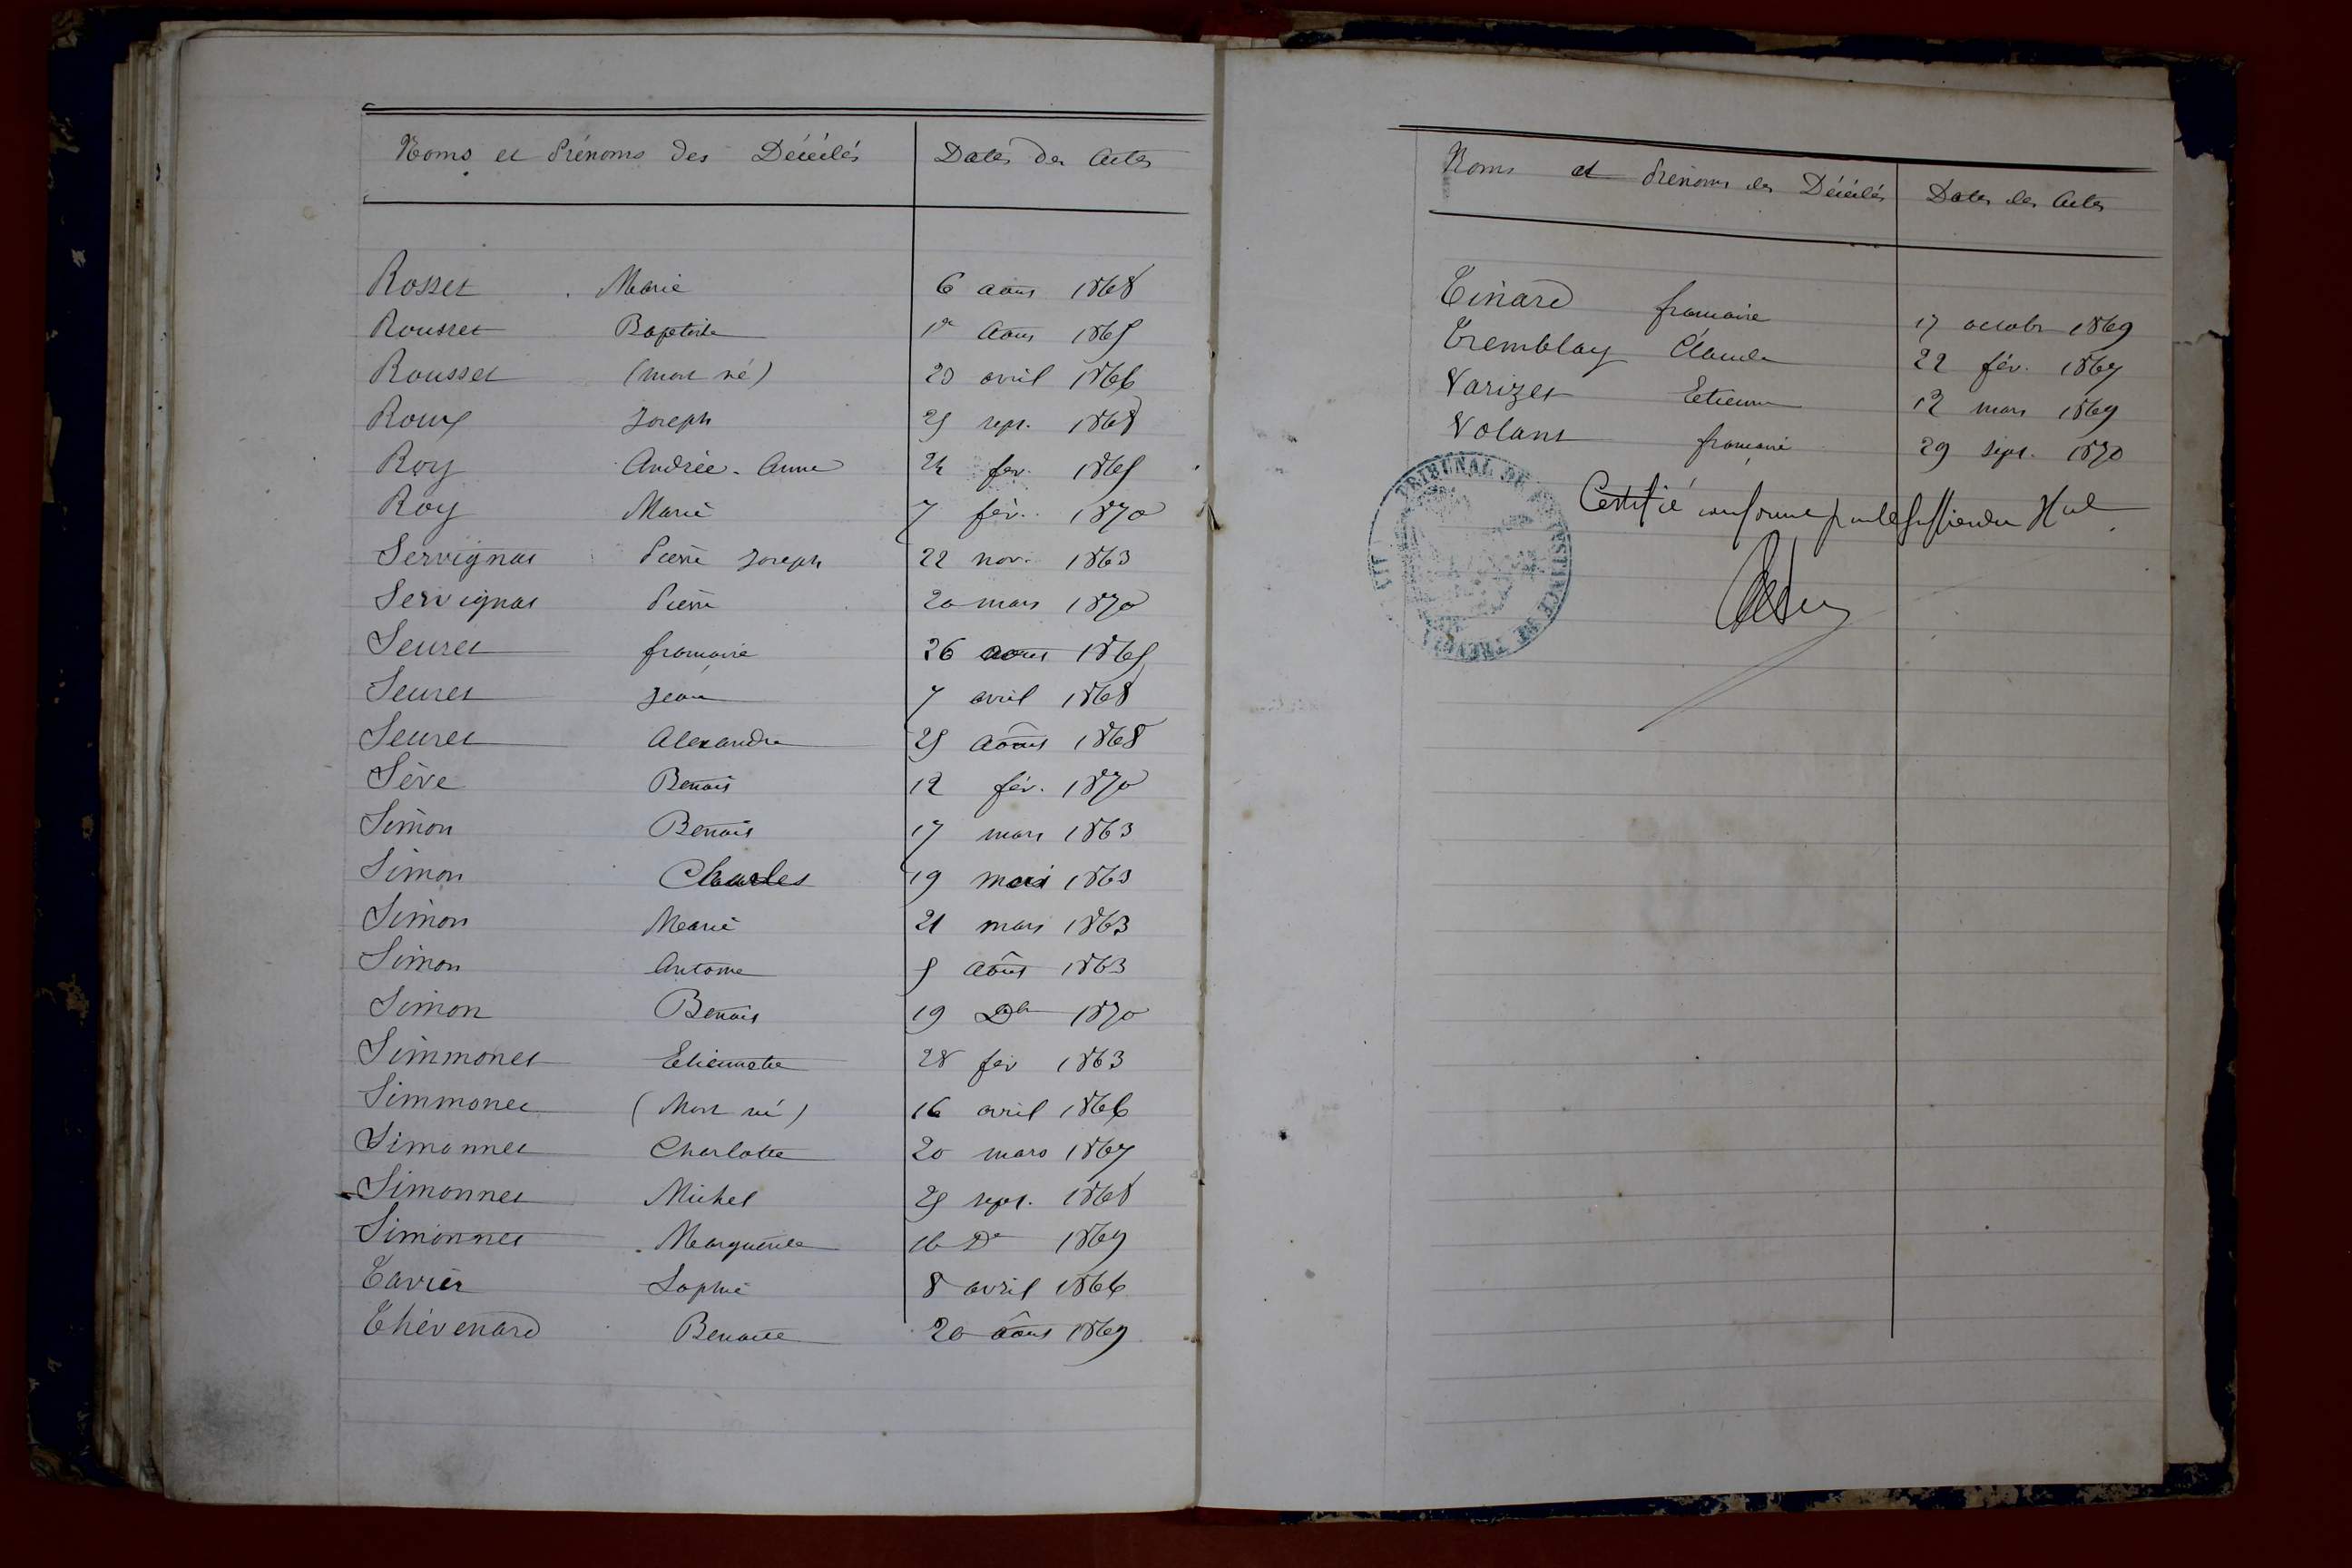 Noms et Prénoms des Décédés Dates des Actes
Rosset Marie 6 aout 1868
Rousset Baptiste 1er Aout 1865
Rousset (mort né) 23 avril 1866
Roux Joseph 25 sept. 1868
Roy Andrée-Anne 24 fev. 1865
Roy Marie 7 fév. 1870
Servignat Pierre Joseph 22 nov. 1863
Servignat Pierre 20 mars 1870
Seuret françoise 26 aout 1865
Seuret Jean 7 avril 1868
Seuret Alexandre 25 Août 1868
Sève Benoit 12 fév. 1870
Simon Benoit 17 mars 1863
Simon Charles 19 mars 1863
Simon Marie 21 mars 1863
Simon Antoine 5 Août 1863
Simon Benoit 19 Dbr 1870
Simmonet Etiennette 28 fév 1863
Simmonet (Mort né) 16 avril 1866
Simonnet Charlotte 20 mars 1867
Simonnet Michel 25 sept. 1868
Simonnet Marguerite 16 De 1869
Tavier Sophie 8 avril 1866
Thévenard Benoite 20 août 1869
Noms et Prénoms des Décédés Dates des Actes
Tinard françoise 17 octobr 1869
Tremblay Claude 22 fév. 1867
Varizet Etienne 12 mars 1869
Volant françoise 29 Sept. 1870
Certifié conforme par le Greffier du Hul
TRIBUNAL DE 1RE INSTANCE DE TREVOUX
AIN